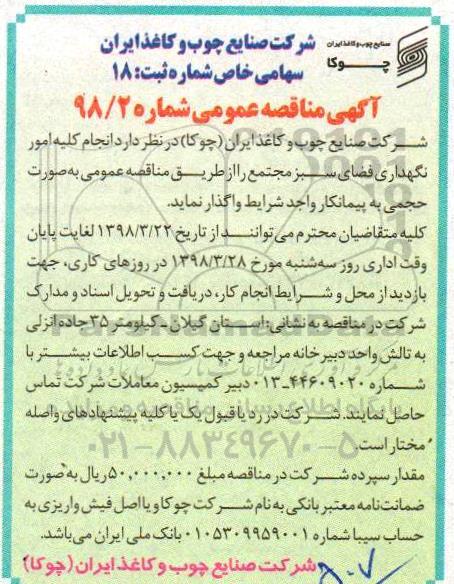 صنایع چوب و کاغذ ایران
چوکا
شرکت صنایع چوب و کاغذ ایران
سهامی خاص شماره ثبت: ۱۸
آگهی مناقصه عمومی شماره ۹۸/۲
شرکت صنایع چوب و کاغذ ایران (چوکا) در نظر دارد انجام کلیه امور
نگهداری فضای سبز مجتمع را از طریق مناقصه عمومی به صورت
حجمی به پیمانکار واجد شرایط واگذار نماید.
کلیه متقاضیان محترم می‌توانند از تاریخ ۱۳۹۸/۳/۲۲ لغایت پایان
وقت اداری روز سه‌شنبه مورخ ۱۳۹۸/۳/۲۸ در روزهای کاری، جهت
بازدید از محل و شرایط انجام کار، دریافت و تحویل اسناد و مدارک
شرکت در مناقصه به نشانی: استان گیلان ـ کیلومتر ۳۵ جاده انزلی
به تالش واحد دبیرخانه مراجعه و جهت کسب اطلاعات بیشتر با
شماره ۴۴۶۰۹۰۲۰-۰۱۳ دبیر کمیسیون معاملات شرکت تماس
حاصل نمایند. شرکت در رد یا قبول یک یا کلیه پیشنهادهای واصله
مختار است.
۰۲۱-۸۸۳۴۹۶۷۰-۵
مقدار سپرده شرکت در مناقصه مبلغ ۵۰,۰۰۰,۰۰۰ ریال به صورت
ضمانت‌نامه معتبر بانکی به نام شرکت چوکا و یا اصل فیش واریزی به
حساب سیبا شماره ۰۱۰۵۳۰۹۹۵۹۰۰۱ بانک ملی ایران می‌باشد.
شرکت صنایع چوب و کاغذ ایران (چوکا)